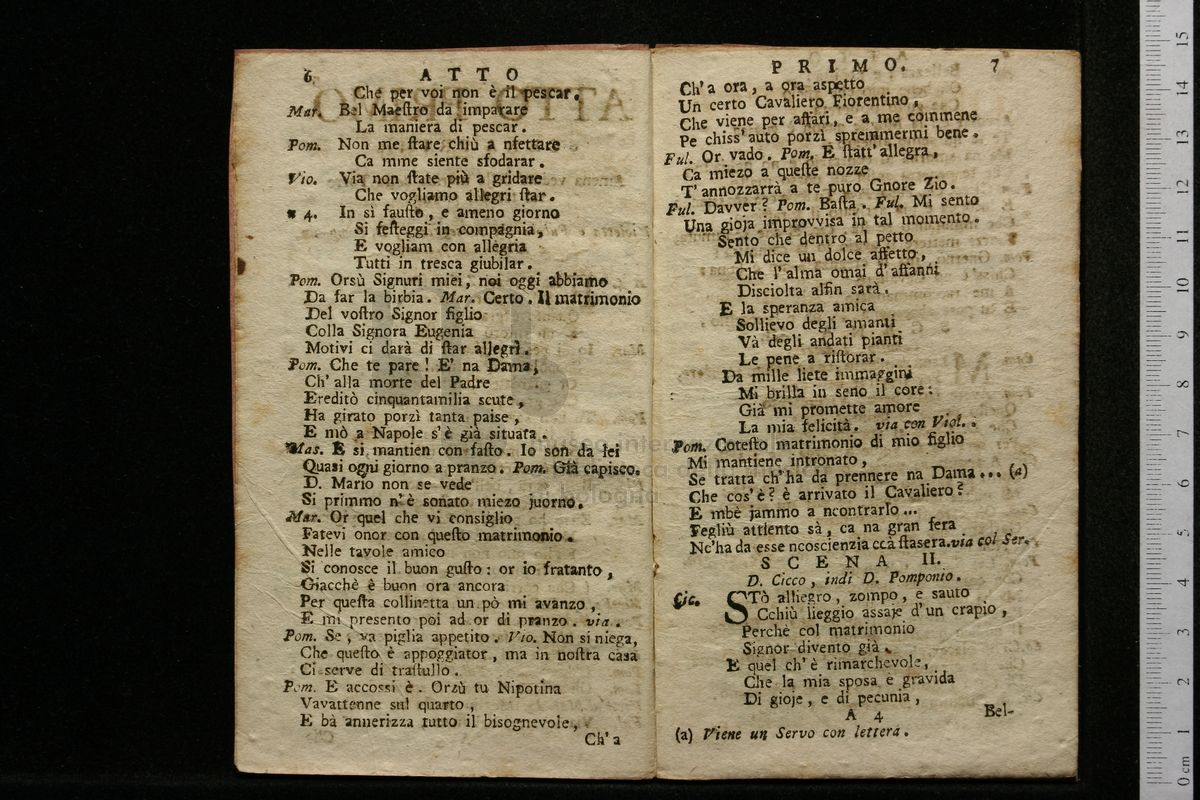 6 ATTO
Che per voi non è il pescar.
Mar. Bel Maeſtro da imparare
La maniera di pescar.
Pom. Non me ſtare chiù a nfettare
Ca mme siente sfodarar.
Vio. Via non ſtate più a gridare
Che vogliamo allegri ſtar.
a 4. In sì fauſto, e ameno giorno
Si feſteggi in compagnia,
E vogliam con allegria
Tutti in tresca giubilar.
Pom. Orsù Signuri miei, noi oggi abbiamo
Da far la birbia. Mar. Certo. Il matrimonio
Del voſtro Signor figlio
Colla Signora Eugenia
Motivi ci darà di ſtar allegri.
Pom. Che te pare! E' na Dama,
Ch' alla morte del Padre
Ereditò cinquantamilia scute,
Ha girato porzì tanta paise,
E mò a Napole s'è già situata.
Mas. E si mantien con faſto. Io son da lei
Quasi ogni giorno a pranzo. Pom. Già capisco.
D. Mario non se vede
Si primmo n'è sonato miezo juorno.
Mar. Or quel che vi consiglio
Fatevi onor con queſto matrimonio.
Nelle tavole amico
Si conosce il buon guſto: or io fratanto,
Giacchè è buon ora ancora
Per queſta collinetta un pò mi avanzo,
E mi presento poi ad or di pranzo. via.
Pom. Se, va piglia appetito. Vio. Non si niega,
Che queſto è appoggiator, ma in noſtra casa
Ci serve di traſtullo.
Pom. E accossì è. Orzù tu Nipotina
Vavattenne sul quarto,
E bà annerizza tutto il bisognevole,
Ch' a
PRIMO. 7
Ch' a ora, a ora aspetto
Un certo Cavaliero Fiorentino,
Che viene per affari, e a me commene
Pe chiss' auto porzì spremmermi bene.
Ful. Or vado. Pom. E ſtatt' allegra,
Ca miezo a queſte nozze
T' annozzarrà a te puro Gnore Zio.
Ful. Davver? Pom. Baſta. Ful. Mi sento
Una gioja improvvisa in tal momento.
Sento che dentro al petto
Mi dice un dolce affetto,
Che l' alma omai d' affanni
Disciolta alfin sarà.
E la speranza amica
Sollievo degli amanti
Và degli andati pianti
Le pene a riſtorar.
Da mille liete immaggini
Mi brilla in seno il core:
Già mi promette amore
La mia felicità. via con Viol.
Pom. Coteſto matrimonio di mio figlio
Mi mantiene intronato,
Se tratta ch' ha da prennere na Dama... (a)
Che cos' è? è arrivato il Cavaliero?
E mbè jammo a ncontrarlo...
Fegliù attiento sà, ca na gran fera
Nc'ha da esse ncoscienzia ccà ſtasera. via col Ser.
SCENA II.
D. Cicco, indi D. Pomponio.
Cic. STò alliegro, zompo, e sauto
Cchiù lieggio assaje d'un crapio,
Perchè col matrimonio
Signor divento già.
E quel ch' è rimarchevole,
Che la mia sposa è gravida
Di gioje, e di pecunia,
A 4 Bel-
(a) Viene un Servo con lettera.